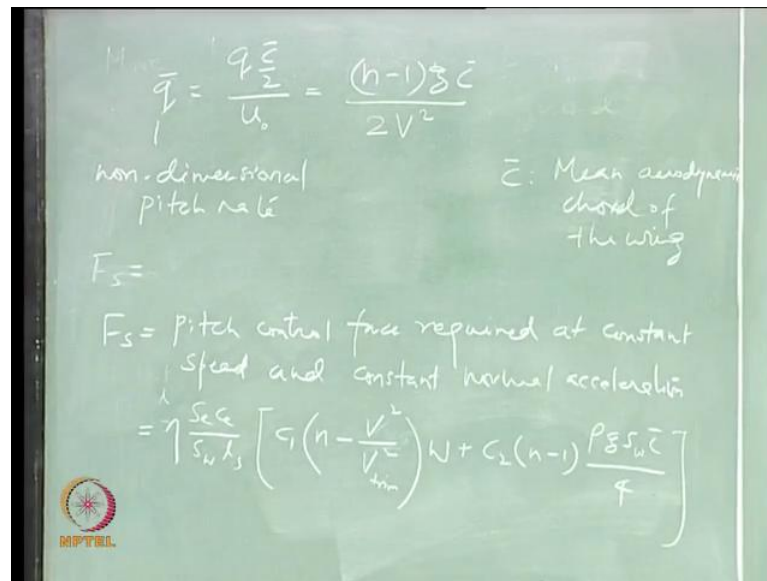 q̄ = (q c̄/2)/u₀ = (n-1)g c̄/2V²
non-dimensional pitch rate
c̄: Mean aerodynamic chord of the wing
Fs =
Fs = pitch control force required at constant
speed and constant normal acceleration
= η SeCe/Sw [C₁(n - V²/V²trim)W + C₂(n-1) ρgSwc̄/4]
NPTEL